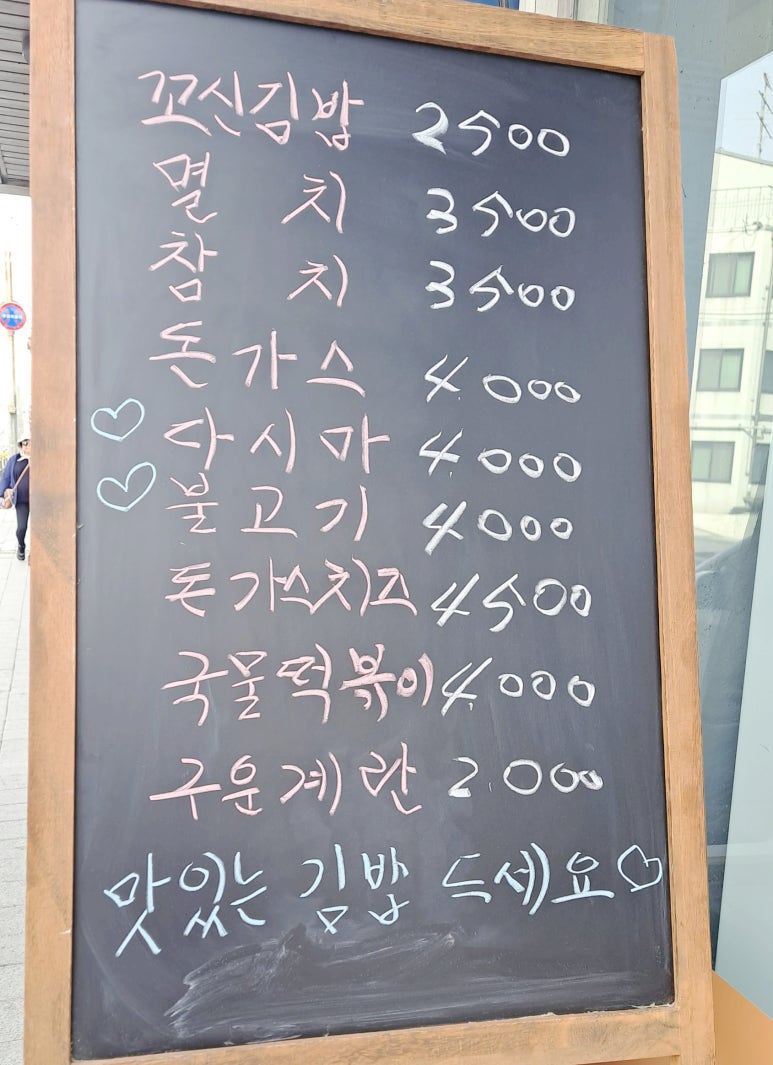 꼬신김밥 2500
멸 치 3500
참 치 3500
돈가스 4000
♡ 다시마 4000
♡ 불고기 4000
돈가스치즈 4500
국물떡볶이 4.000
구운계란 2.000
맛있는 김밥 드세요♡